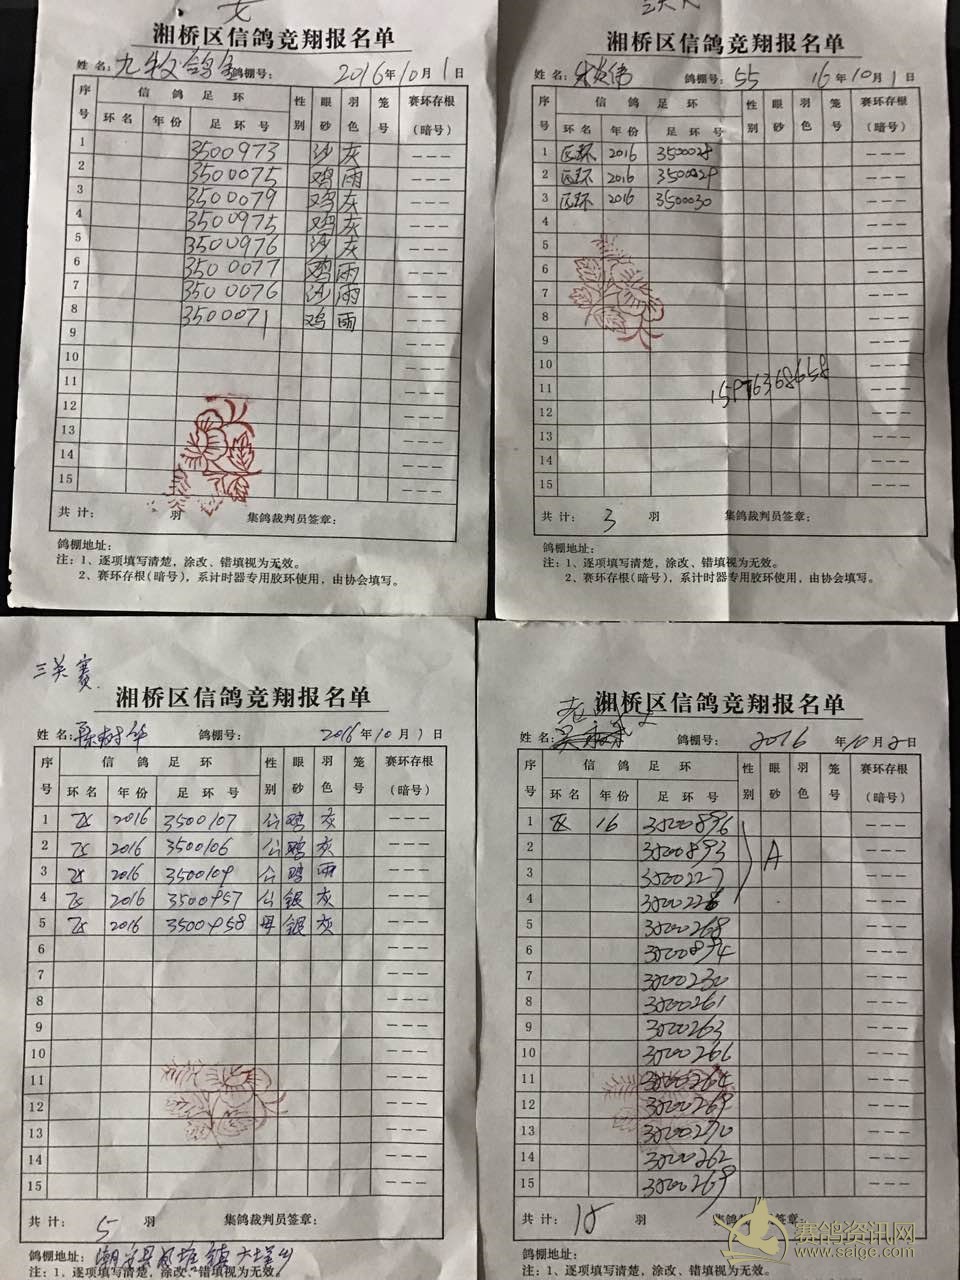 湘桥区信鸽竞翔报名单
姓名:九牧鸽舍 鸽棚号: 2016年10月1日
序号 信鸽足环 性别 眼砂 羽色 笼号 赛环存根(暗号)
环名 年份 足环号
1 3500973 沙 灰 ---
2 3500075 鸡 雨 ---
3 3500079 鸡 灰 ---
4 3500975 鸡 灰 ---
5 3500976 沙 灰 ---
6 3500077 鸡 雨 ---
7 3500076 沙 雨 ---
8 3500071 鸡 雨 ---
9 ---
10 ---
11 ---
12 ---
13 ---
14 ---
15 ---
共计: 羽 集鸽裁判员签章:
鸽棚地址:
注:1、逐项填写清楚,涂改、错填视为无效。
2、赛环存根(暗号),系计时器专用胶环使用,由协会填写。
湘桥区信鸽竞翔报名单
姓名: 鸽棚号:55 16年10月1日
序号 信鸽足环 性别 眼砂 羽色 笼号 赛环存根(暗号)
环名 年份 足环号
1 区环 2016 3500028 ---
2 区环 2016 3500029 ---
3 区环 2016 3500030 ---
4 ---
5 ---
6 ---
7 ---
8 ---
9 ---
10 ---
11 ---
12 ---
13 ---
14 ---
15 ---
共计: 3 羽 集鸽裁判员签章:
鸽棚地址:
注:1、逐项填写清楚,涂改、错填视为无效。
2、赛环存根(暗号),系计时器专用胶环使用,由协会填写。
三关赛
湘桥区信鸽竞翔报名单
姓名:陈树华 鸽棚号: 2016年10月1日
序号 信鸽足环 性别 眼砂 羽色 笼号 赛环存根(暗号)
环名 年份 足环号
1 区 2016 3500107 公 鸡 灰 ---
2 区 2016 3500106 公 鸡 灰 ---
3 区 2016 3500109 公 鸡 雨 ---
4 区 2016 3500957 公 银 灰 ---
5 区 2016 3500958 母 银 灰 ---
6 ---
7 ---
8 ---
9 ---
10 ---
11 ---
12 ---
13 ---
14 ---
15 ---
共计: 5 羽 集鸽裁判员签章:
鸽棚地址:
注:1、逐项填写清楚,涂改、错填视为无效。
湘桥区信鸽竞翔报名单
姓名: 鸽棚号: 2016年10月2日
序号 信鸽足环 性别 眼砂 羽色 笼号 赛环存根(暗号)
环名 年份 足环号
1 区 16 3500896 ---
2 3500893 A ---
3 3500227 ---
4 3500228 ---
5 3500268 ---
6 3500894 ---
7 3500230 ---
8 3500261 ---
9 3500263 ---
10 3500266 ---
11 3500264 ---
12 3500269 ---
13 3500270 ---
14 3500262 ---
15 3500269 ---
共计: 15 羽 集鸽裁判员签章:
鸽棚地址:
注:1、逐项填写清楚,涂改、错填视为无效。
赛鸽资讯网
www.saigc.com